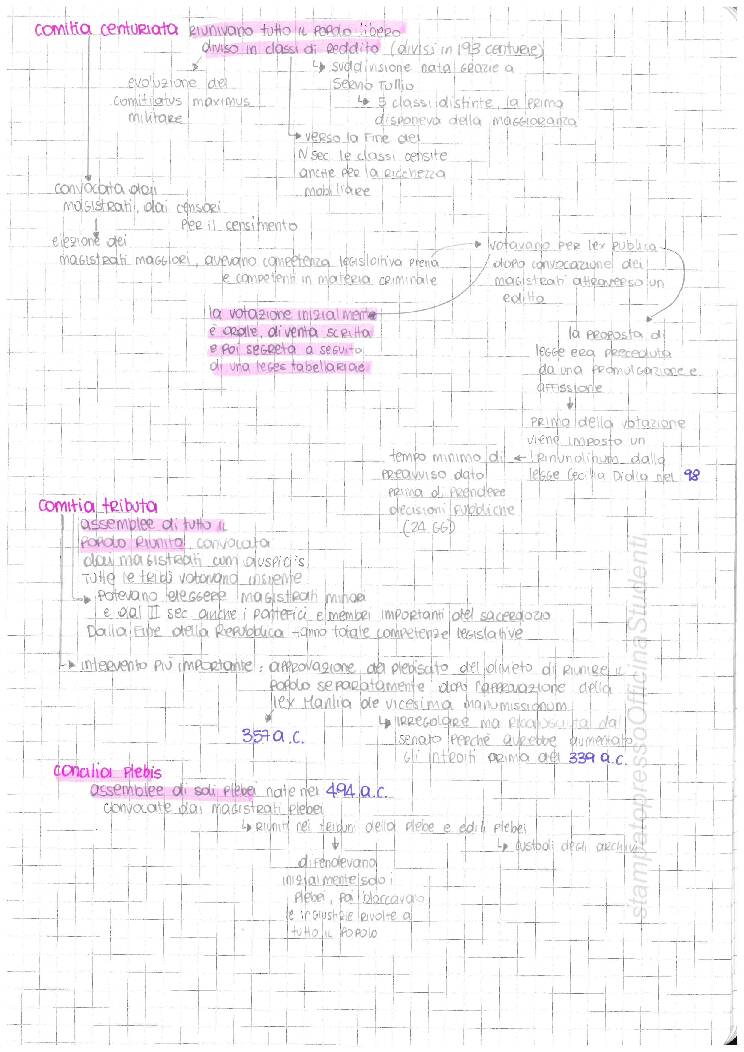 comitia centuriata riunivano tutto il popolo libero
diviso in classi di reddito (divisi in 193 centurie)
↳ suddivisione nata grazie a
Servio Tullio
↳ 5 classi distinte, la prima
disponeva della maggioranza
evoluzione del
comitiatus maximus
militare
verso la fine del
IV sec le classi censite
anche per la ricchezza
mobiliare
convocata dai
magistrati, dai censori
per il censimento
elezione dei
magistrati maggiori, avevano competenza legislativa piena
e competenti in materia criminale
votavano per lex publica
dopo convocazione dei
magistrati attraverso un
editto
la votazione inizialmente
è orale, diventa scritta
e poi segreta a seguito
di una leges tabellariae
la proposta di
legge era preceduta
da una promulgazione e
affissione
prima della votazione
viene imposto un
trinundinum dalla
legge Cecilia Didia nel 98
tempo minimo di
preavviso dato
prima di prendere
decisioni pubbliche
(24 GG)
comitia tributa
assemblee di tutto il
popolo riunito convocata
dai magistrati cum auspicis
tutte le tribù votavano insieme
potevano eleggere magistrati minori
e dal II sec anche i pontefici e membri importanti del sacerdozio
Dalla fine della Repubblica hanno totale competenze legislative
intervento più importante: approvazione del plebiscito del divieto di riunire il
popolo separatamente dopo l'approvazione della
lex Manlia de vicesima manumissionum
357 a.c.
↳ irregolare ma riconosciuta dal
senato perché avrebbe aumentato
gli introiti prima del 339 a.c.
concilia plebis
assemblee di soli plebei nate nel 494 a.c.
convocate dai magistrati plebei
↳ riuniti nei tribuni della plebe e edili plebei
↳ custodi degli archivi
difendevano
inizialmente solo i
plebei, poi bloccavano
le ingiustizie rivolte a
tutto il popolo
stampatopressoOfficinaStudenti